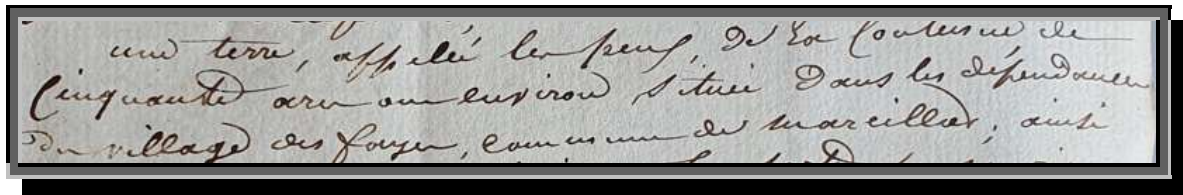 une terre, appelée les peux, de la Contenue de
Cinquante ares ou environ Située Dans les dépendances
Du village des fayes, commune de marcillac, ainsi